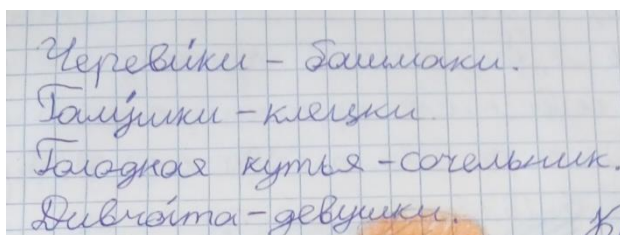 Череви́ки – башмаки.
Галу́шки – клёцки
Голодная кутья – сочельник.
Дивча́та – девушки. К